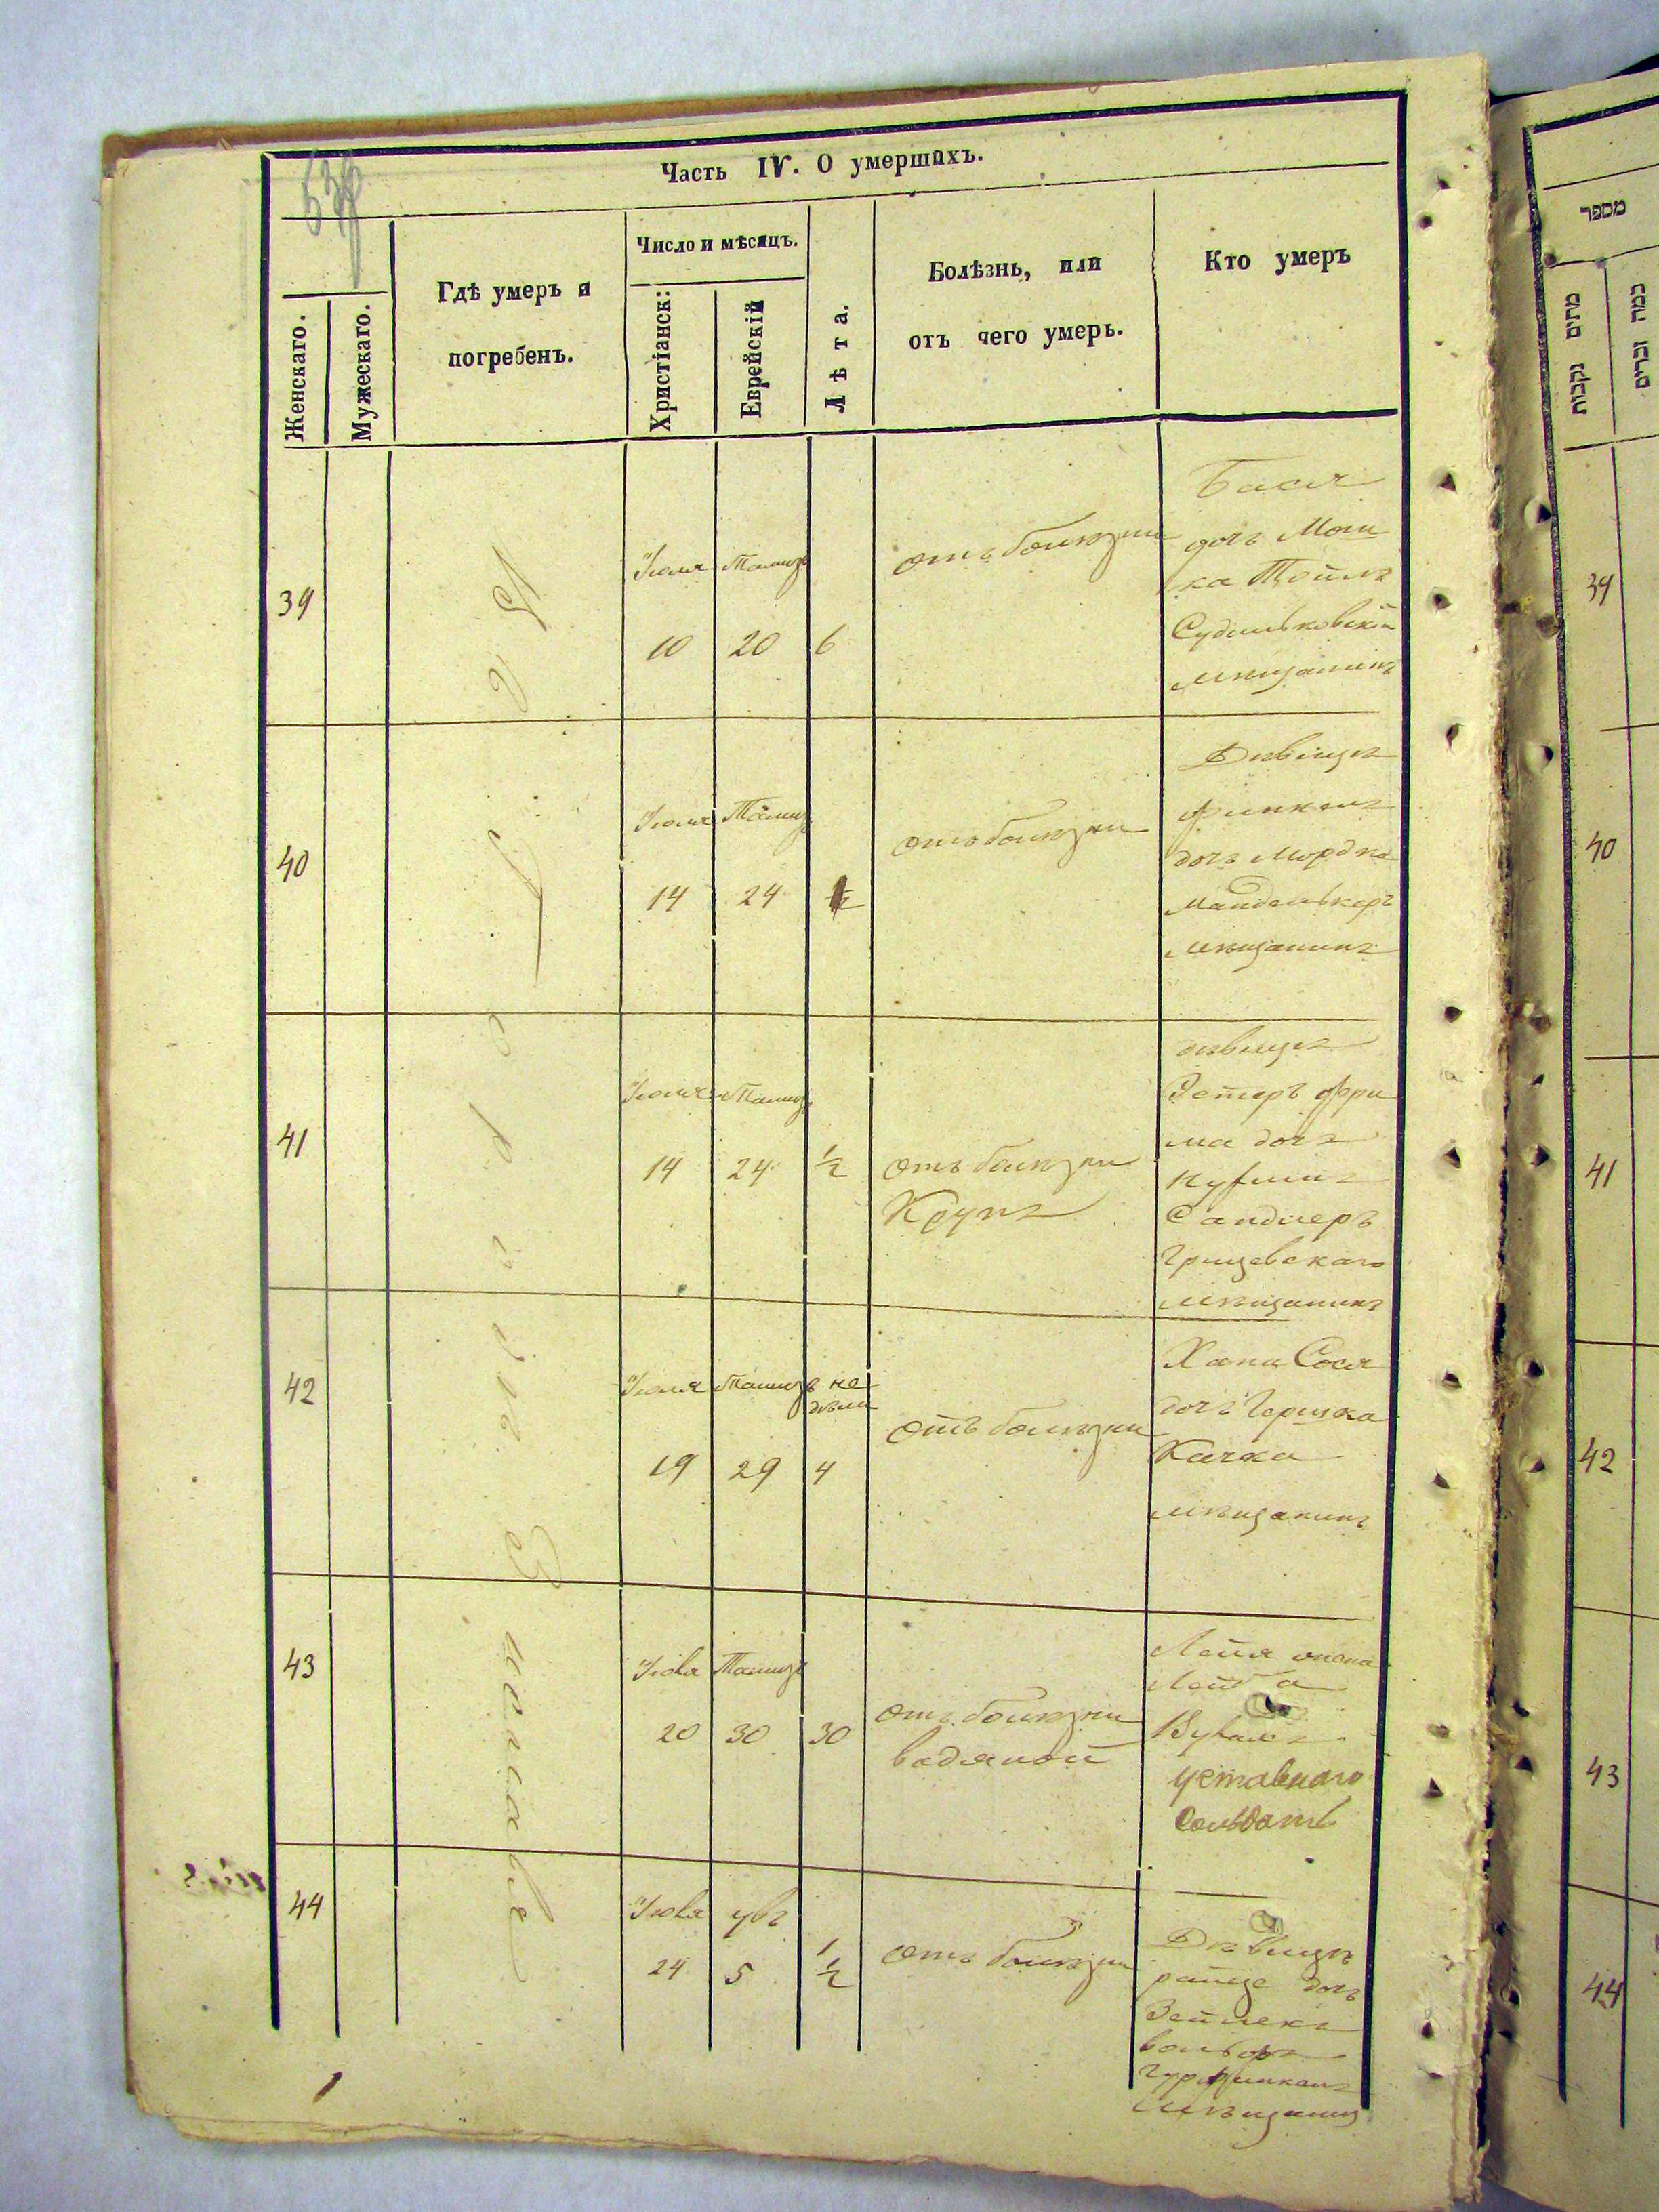 Часть IV. О умершихъ.
Женскаго.
Мужескаго.
Гдѣ умеръ и
погребенъ.
Число и мѣсяцъ.
Христіанск:
Еврейскій
Лѣта.
Болѣзнь, или
отъ чего умеръ.
Кто умеръ
Въ Г
39
Іюля
10
Тамизъ
20
6
отъ болѣзни
Бася
дочь Мош
ка Тойлъ
Судилковскій
мѣщанинъ
40
Іюля
14
Тамизъ
24
½
отъ болѣзни
Дѣвица
Финкель
дочь Мордка
Манделькеръ
мѣщанинъ
41
Іюля
14
Тамизъ
24
½
отъ болѣзни
Крупъ
дѣвица
Эстеръ Фри
ма дочь
Сандлеръ
Грицевскаго
мѣщанинъ
42
Іюля
19
Тамизъ
29
не
дѣли
4
отъ болѣзни
Хана Сося
дочь Гершка
Качка
мѣщанинъ
43
Іюля
20
Тамизъ
30
30
отъ болѣзни
водяной
Лейя жена
Лейба
уставнаго
Солдатъ
44
Іюля
24
увъ
5
1
½
отъ болѣзни
Дѣвица
райзе дочь
вольфъ
гурфинкель
мѣщанинъ
מספר
מתים נקבות
כמה זכרים
39
40
41
42
43
44